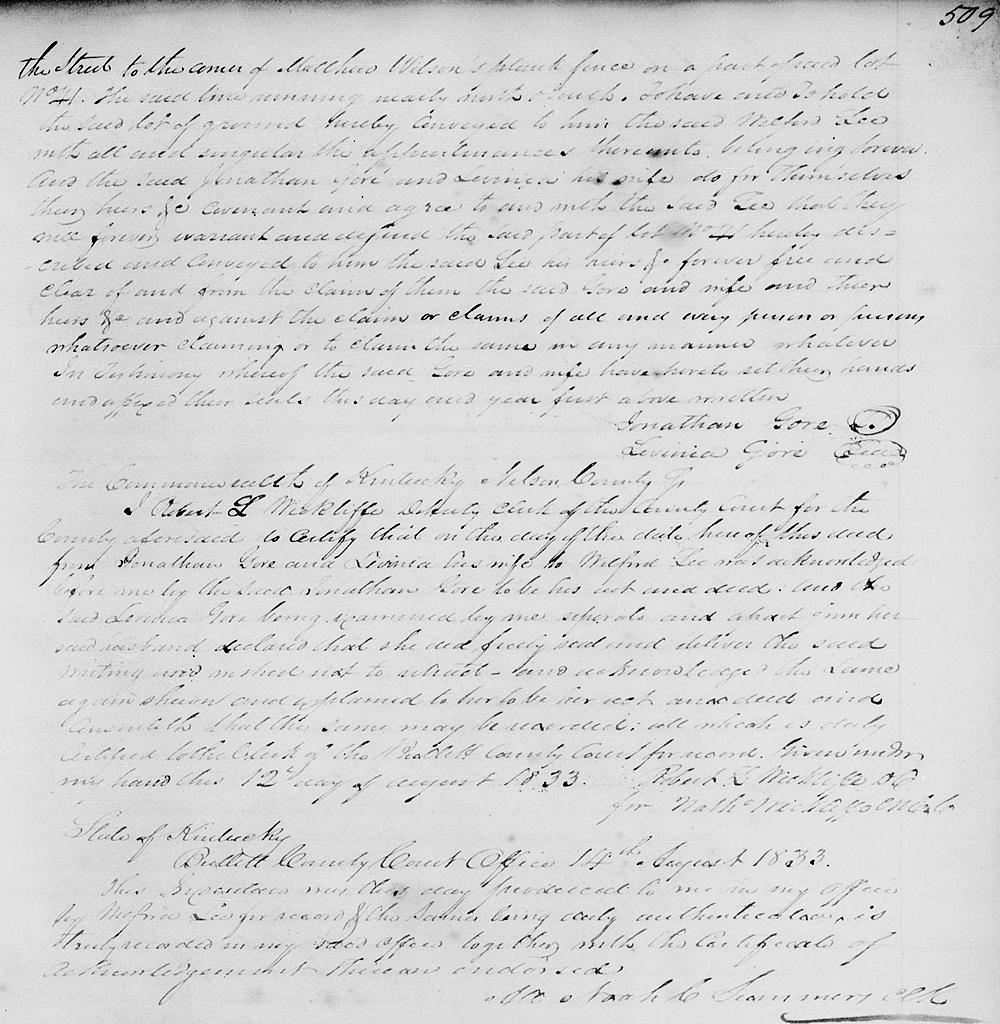 509
the Street to the corner of Matthew Wilson's plank fence on a part of said lot
No 41. The said line running nearly north & south. To have and To hold
the said lot of ground hereby Conveyed to him the said Wilford Lee
with all and singular the appurtenances thereunto belonging forever.
And the said Jonathan Gore and Levinia his wife do for themselves
their heirs &c Covenant and agree to and with the said Lee that they
will forever warrant and defend the said part of lot No 41 hereby des=
=cribed and Conveyed to him the said Lee his heirs &c forever free and
Clear of and from the claim of them the said Gore and wife and their
heirs &c and against the claim or claims of all and every person or persons
whatsoever claiming or to claim the same in any manner whatever
In Testimony whereof the said Gore and wife have hereto set their hands
and affixed their seals this day and year first above written
Jonathan Gore
Levinia Gore Seal
The Commonwealth of Kentucky Nelson County
I Robert L Wickliffe Deputy Clerk of the County Court for the
County aforesaid do Certify that on the day of the date hereof this deed
from Jonathan Gore and Levinia his wife to Wilford Lee was acknowledged
before me by the said Jonathan Gore to be his act and deed: and the
said Levinia Gore being examined by me seperate and apart from her
said husband declared that she did freely seal and deliver the said
writing and wished not to retract - and acknowledged the same
again shewn and explained to her to be her act and deed and
Consenteth that the same may be recorded: all which is duly
Certified to the Clerk of the Bullitt County Court for record. Given under
my hand this 12th day of August 1833. Robert L Wickliffe DC
for Wickliffe
State of Kentucky
Bullitt County Court Office 14th August 1833.
This was this day produced to me in my office
by Wilford Lee for record & the same being duly authenticated, is
truly recorded in my said office together with the Certificate of
acknowledgement thereon endorsed
Noah C Summers Clk